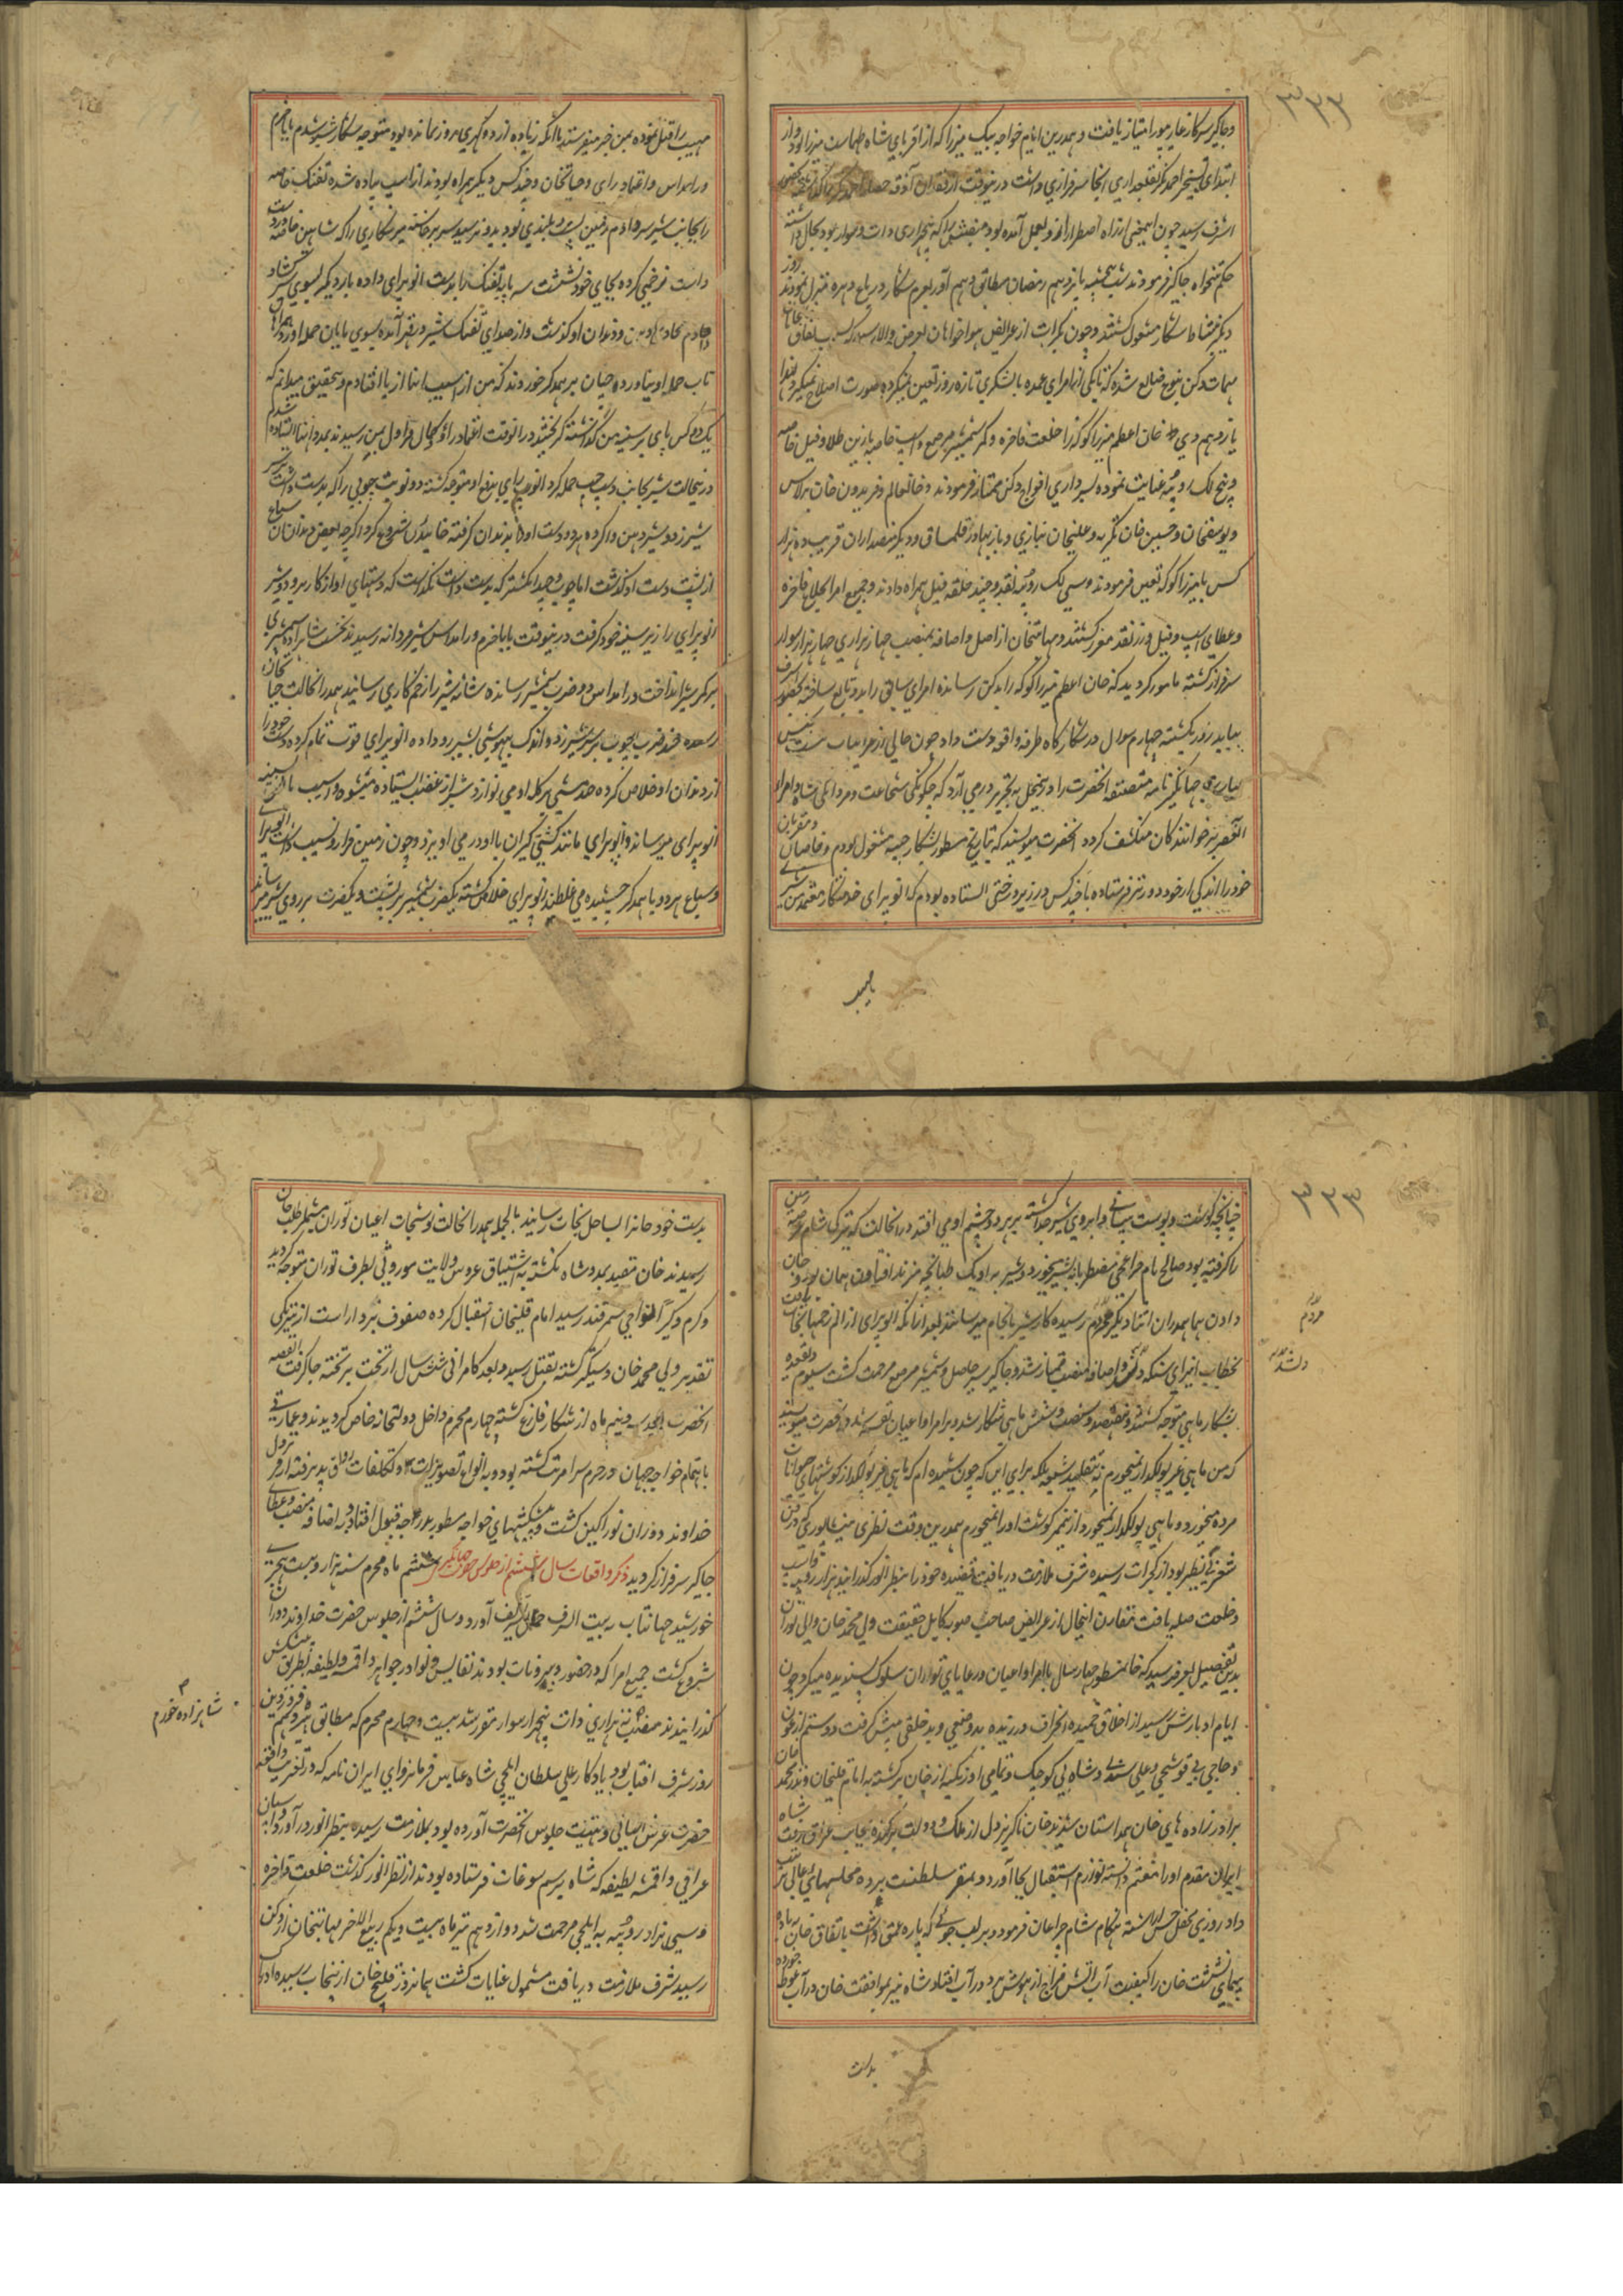 ۳۲۲
وجاگیر سرکار غازیپور امتیاز یافت و همدرین ایام خواجه بیگ میرزا که از اقربای شاه طهماسب میرزا بود و از
ابتدای تسخیر احمدنگر بقلعداری آنجا سرفرازی داشت درینوقت از فقدان آذوقه حصار احمدنگر
اشرف رسید چون اینمعنی از راه اضطرار ازو بعمل آمده بود منصبش را که پنجهزاری ذات و سوار بود بحال داشته
حکم تنخواه جاگیر فرمودند شب پنجشنبه یازدهم رمضان مطابق دهم آذر بعزم شکار در باغ دهره منزل نمودند روز
دیگر بنشاط شکار مشغول گشتند و چون بکرات از عرایض هواخواهان بعرض والا رسید که بسبب نفاق
مهمات دکن بنوعی ضایع شده که تا یکی از امرای عمده با لشکری تازه زور تعین نمیگردد صورت اصلاح نمیگیرد لهذا
یازدهم دی ماه خان اعظم میرزا کوکه را خلعت فاخره و کمر شمشیر مرصع و اسپ خاصه با زین طلا و فیل خاصه
و پنج لک روپیه عنایت نموده بسرداری افواج دکن ممتاز فرمودند و خانعالم و فریدون خان برلاس
و یوسفخان و حسین خان تکریه و علیخان نیازی و باز بهادر قلماق و دیگر منصبداران قریب ده هزار
کس با میرزا کوکه تعین فرمودند و سی لک روپیه نقد و چند حلقه فیل همراه دادند و جمیع امرا بخلاع فاخره
و عطای اسپ و فیل و زر نقد مفتخر گشتند و مهابتخان از اصل و اضافه بمنصب چهار هزاری چهار هزار سوار
سرفراز گشته مامور گردید که خان اعظم میرزا کوکه را بدکن رسانده امرای سابق را بدو تابع ساخته بحضور اشرف
بیاید روز یکشنبه چهارم شوال در شکارگاه طرفه واقعه دست داد چون خالی از غرایب نیست بجنس
عبارت جهانگیرنامه مصنفه آنحضرت را درینمحل بتحریر درمی آرد که چگونگی شجاعت و مردانگی شاه و امرا
العصر بر خوانندگان منکشف گردد آنحضرت مینویسند که بتاریخ مسطور بشکار چیته مشغول بودم و خاصان و مقربان
خود را اندکی از خود دورتر فرستاده با چند کس در زیر درختی ایستاده بودم که انوپ رای خدمتگار معتمد من شیر
مهیب
مهیب را قبل نموده بمن خبر میفرستد با آنکه زیاده از دو گهری روز نمانده بود متوجه شکار شیر شدم بابا خرم
و رامداس و اعتماد رای و حیاتخان و چند کس دیگر همراه بودند از اسپ پیاده شده تفنک خاصه
را بجانب شیر سر دادم زمین پست و بلندی بود بدو نرسید سر برخاسته میرشکاری را که شاهین خاصه دردست
داشت زخمی کرده بجای خود نشست سه پایه تفنک را بدست انوپ رای داده بار دیگر بسوی شیر گشاد
تاب حمله او نیاورده چنان بر همدیگر خوردند که من از آسیب اینها از پا افتادم و بتحقیق میدانم که
یک دو کس پای بر سینه من گذاشته گریختند درانوقت اعتماد رای و کمال قراول بمن رسیدند بمدد اینها ایستاده شدم
درینحالت شیر بجانب دست چپ حمله کرد انوپ رای بدفع او متوجه گشته دو نوبت چوبی را که بدست داشت بر سر
شیر زد و شیر دهن وا کرده هر دو دست او را بدندان گرفته خائیدن شروع کرد اگرچه بعضی دندان آن سباع
از پشت دست او گذشت اما چوب و چند انگشتر که بدست داشت نگذاشت که دستهای او از کار برود و شیر
انوپ رای را زیر سینه خود گرفت درینوقت بابا خرم و رامداس شیر مردانه رسیدند نخست شاهزاده شمشیری
بر کمر شیر انداخت و رامداس دو ضرب شمشیر رسانده شانه شیر را زخم کاری رسانید همدرانحالت حیاتخان
رسیده چند ضرب چوب بر سر شیر زد و اندک بیهوشی بشیر رو داده انوپ رای قوت تمام کرده دست خود را
از دندان او خلاص کرده چند مشتی بر کله او می نوازد شیر از غضب ایستاده میشود و آسیب ناخن به سینه
انوپ رای میرساند و انوپ رای مانند کشتی گیران با او درمی آویزد و چون زمین فراز و نشیب داشت انوپ رای
و سباع هر دو با همدیگر چسپیده می غلطند انوپ رای خلاص گشته یکضرب شمشیر بر پشت و یکضرب بر روی شیر میرساند
۳۲۳
چنانچه گوشت و پوست پیشانی و ابروی شیر جدا گشته بر هر دو چشم او می افتد درانحالت که تاریکی شام عرصه زمین
را گرفته بود صالح نام چراغچی مضطربانه بشیر میخورد و شیر به او یک طپانچه میزند افتادن همان بود و جان
دادن همان همدران اثنا دیگر مردم رسیده کار شیر بانجام میرسانند بعد از آنکه انوپ رای از الم زخمها نجات یافت
بخطاب انیرای سنگه دلن و باضافه منصب ممتاز شد و جاگیر سیر حاصل و شمشیر مرصع مرحمت گشت سیوم ذیقعده
بشکار ماهی متوجه گشتند و هفتصد و شصت و شش ماهی شکار شد و بر امرا و اعیان تقسیم شد و آنحضرت مینویسند
که من ماهی غیر پولکدار نمیخورم نه بتقلید شیعه بلکه برای این که چون شنیده ام که ماهی غیر پولکدار گوشتهای حیوانات
مرده میخورد و ماهی پولکدار نمیخورد ازینممر گوشت او را نمیخورم همدرین وقت نظیری نیشاپوری که در فن
شعر بی نظیر بود از گجرات رسیده شرف ملازمت دریافت و قصیده خود را بنظر انور گذرانید هزار روپیه و اسپ
و خلعت صله یافت مقارن اینحال از عرایض صاحب صوبه کابل حقیقت ولی محمد خان والی توران
بدین تفصیل بعرض رسید که خان مسطور چهار سال با امرا و اعیان و رعایای توران سلوک پسندیده میکرد چون
ایام ادبارش رسید از اخلاق حمیده انحراف ورزیده بد وضعی و بد خلقی پیش گرفت و رستم ارغون
و حاجی بی قوشچی و علی سید و شاه بی کوچک و تمامی اوزبکیه از خان برگشته به امام قلیخان و نذر محمد خان
برادر زاده های خان همداستان شدند خان ناگزیر دل از ملک و دولت برکنده بجانب عراق رفت شاه
ایران مقدم او را مغتنم دانسته لوازم استقبال بجا آورد و بمقر سلطنت برده مجلسهای عالی ترتیب
داد روزی محفل حسن آراسته هنگام شام چراغان فرمود و بر لب جوئی که پاره عمقی داشت باتفاق خان بباده
پیمائی نشست خان را کیفیت آب آتش مزاج از هوش برد و در آب افتاد شاه نیز بموافقت خان در آب غوطه خورده
بدست
مردم
بدست خود خان را بساحل نجات رسانید بالجمله همدرانحالت نوشتجات اعیان توران مشتمل بر طلب خان
رسیدند خان مقید بمدد شاه نگشته باشتیاق عروس ولایت موروثی بطرف توران متوجه گردید
و گرم و گیرا بنواحی سمرقند رسید امام قلیخان استقبال کرده صفوف نبرد آراست از نیرنگی
تقدیر ولی محمد خان دستگیر گشته بقتل رسید و بعد کامرانی شش سال از تخت بر تخته جا گرفت القصه
آنحضرت بعد سه و نیم ماه از شکار فارغ گشته چهارم محرم داخل دولتخانه خاص گردیدند و عمارتی
باهتمام خواجه جهان در حرم سرا مرتب گشته بود و به انواع تصویرات و تکلفات رونق پذیرفته از فر نزول
خداوند دوران نور آگین گشت و پیشکشهای خواجه مسطور بدرجه قبول افتاد و به اضافه منصب و عطای
جاگیر سرفراز گردید ذکر واقعات سال ششم از جلوس حضرت جهانگیر ششم ماه محرم سنه هزار و بیست هجری
خورشید جهانتاب به بیت الشرف حمل تشریف آورد و سال ششم از جلوس حضرت خداوند دوران
شروع گشت جمیع امرا که در حضور و بیرونجات بودند نفایس و نوادر جواهر و اقمشه لطیفه بطریق پیشکش
گذرانیدند منصب ده هزاری ذات پنجهزار سوار مقرر شد بیست و چهارم محرم که مطابق هژدهم فروردین
شاهزاده خورم
روز شرف آفتاب بود یادگار علی سلطان ایلچی شاه عباس فرمانروای ایران نامه که در تعزیت واقعه
حضرت عرش آشیانی و تهنیت جلوس آنحضرت آورده بود بملازمت رسیده بنظر انور درآورد و اسپان
عراقی و اقمشه لطیفه که شاه برسم سوغات فرستاده بودند از نظر انور گذشت خلعت فاخره
و سی هزار روپیه به ایلچی مرحمت شد دوازدهم تیر ماه بیست و یکم ربیع الآخر مهابتخان از دکن
رسید شرف ملازمت دریافت مشمول عنایات گشت همانروز قلیچ خان از پنجاب رسیده